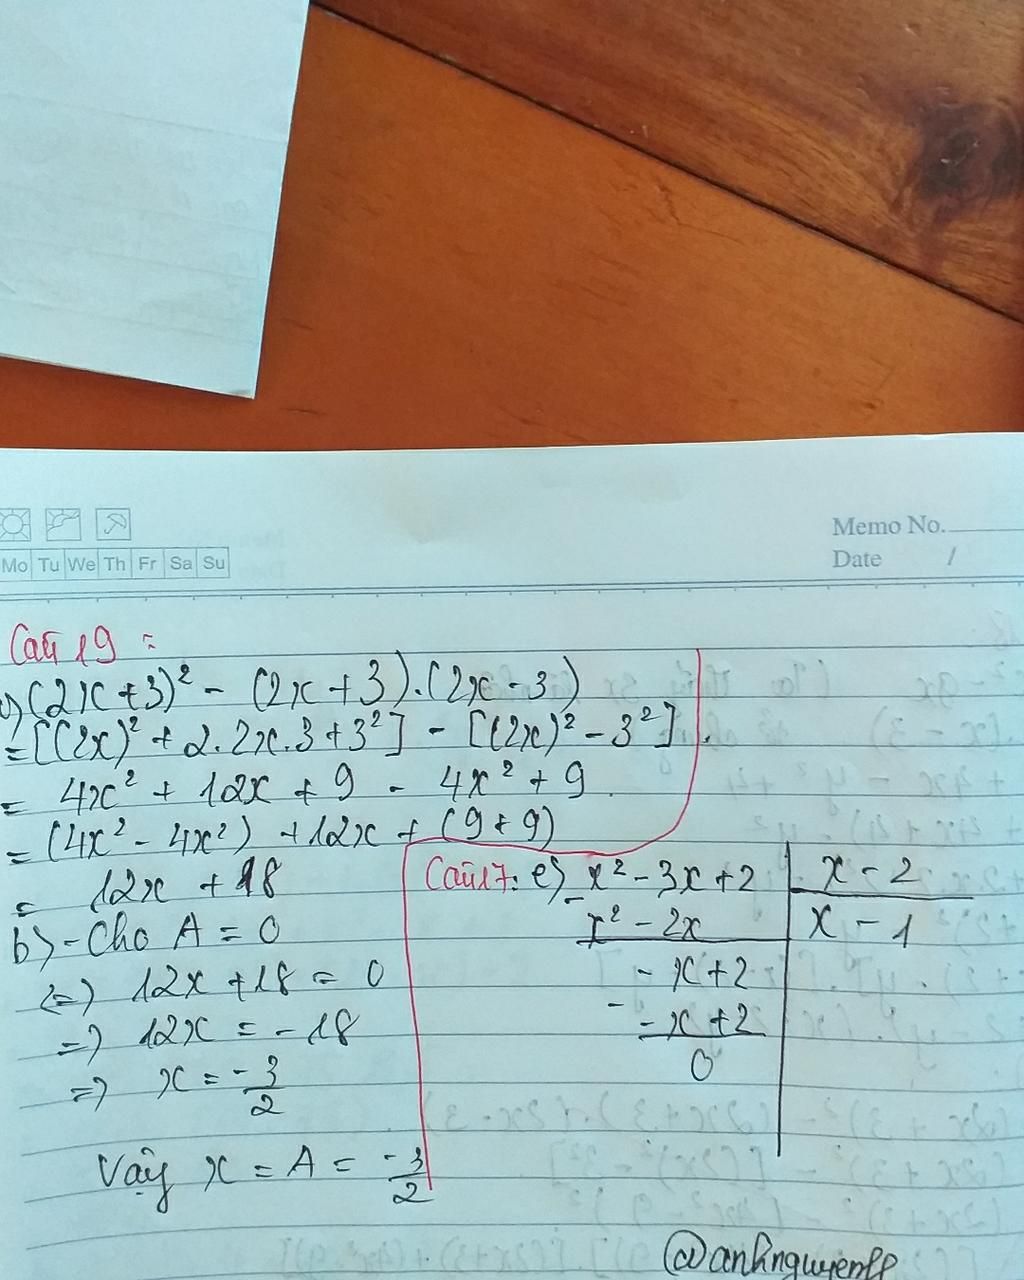 Memo No.
Mo Tu We Th Fr Sa Su
Date /
Câu 19 :
(2x+3)² - (2x+3).(2x-3)
= [(2x)² + 2.2x.3+3²] - [(2x)² - 3²].
= 4x² + 12x + 9 - 4x² + 9
= (4x² - 4x²) + 12x + (9+9)
= 12x + 18
b) - Cho A = 0
(=) 12x + 18 = 0
=) 12x = -18
=) x = -3/2
Vậy x = A = -3/2
Câu 17: e) x² - 3x + 2 | x - 2
- x² - 2x | x - 1
- x + 2
- - x + 2
0
@anhnguyen